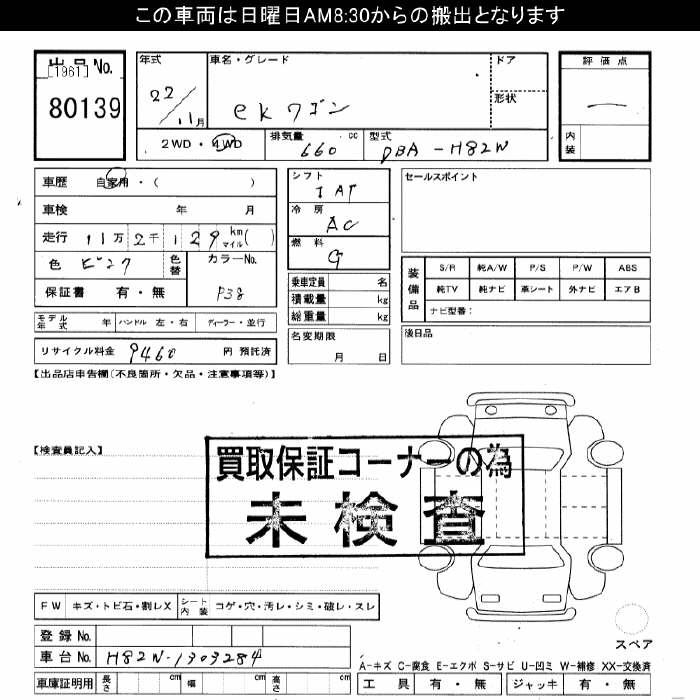 この車両は日曜日AM8:30からの搬出となります
出品No.
[1961]
80139
年式
22/11月
車名・グレード
ekワゴン
ドア
形状
評価点
—
内装
2WD・4WD
排気量 660 cc
型式 DBA-H82W
車歴 自家用・( )
車検 年 月
走行 11万2千129 km マイル( )
色 ピンク
色替
カラーNo.
P38
保証書 有・無
シフト
IAT
冷房
AC
燃料
G
乗車定員 名
積載量 kg
総重量 kg
セールスポイント
装備品
S/R 純A/W P/S P/W ABS
純TV 純ナビ 革シート 外ナビ エアB
ナビ型番:
モデル年式 年 ハンドル 左・右 ディーラー・並行
名変期限
月 日
後日品
リサイクル料金 9460 円 預託済
【出品店申告欄(不良箇所・欠品・注意事項等)】
【検査員記入】
買取保証コーナーの為
未検査
FW キズ・トビ石・割レX
シート内装 コゲ・穴・汚レ・シミ・破レ・スレ
スペア
登録No.
車台No. H82W-1303284
A-キズ C-腐食 E-エクボ S-サビ U-凹ミ W-補修 XX-交換済
車庫証明用 長さ cm 幅 cm 高さ cm
工具 有・無 ジャッキ 有・無